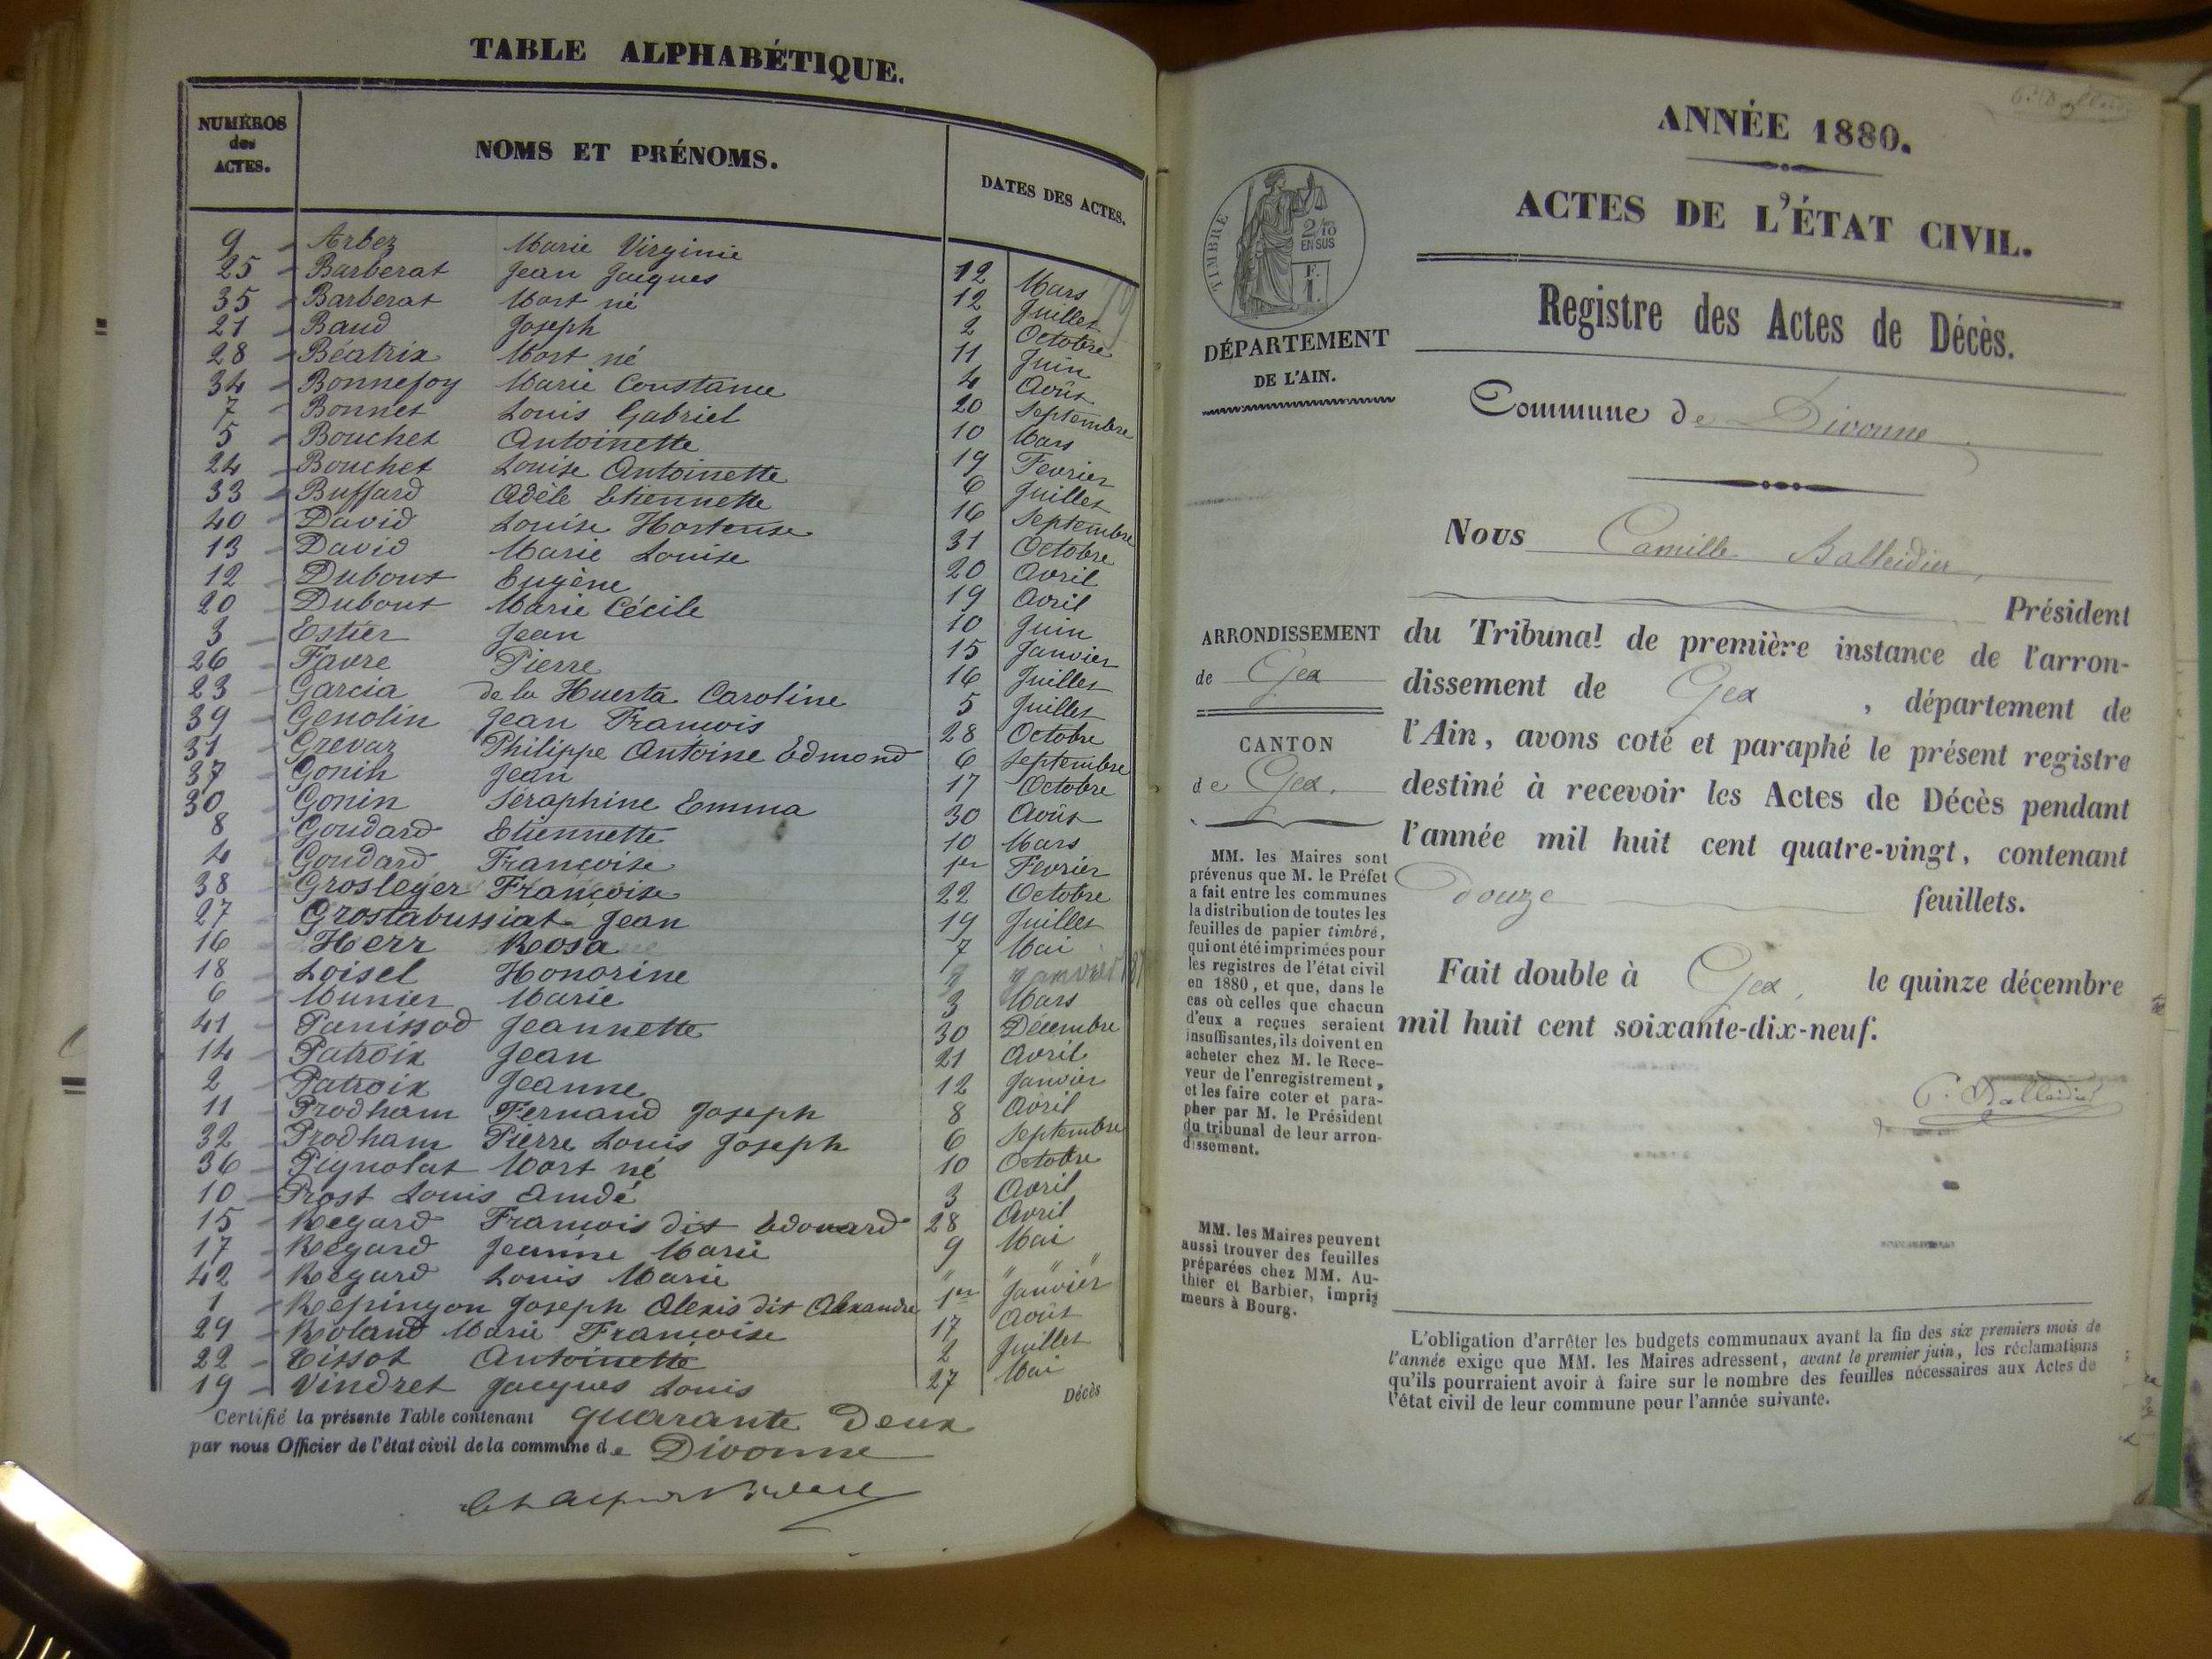 TABLE ALPHABÉTIQUE.
NUMÉROS des ACTES.
NOMS ET PRÉNOMS.
DATES DES ACTES.
9 Arbez Marie Virginie 12 Mars
25 Barberat Jean Jacques 12 Juillet
35 Barberat Mort né 2 Octobre
21 Baud Joseph 11 Juin
28 Béatrix Mort né 4 Août
34 Bonnefoy Marie Constance 20 Septembre
7 Bonnet Louis Gabriel 10 Mars
5 Bouchet Antoinette 19 Fevrier
24 Bouchet Louise Antoinette 6 Juillet
33 Buffard Adèle Etiennette 16 Septembre
40 David Louise Hortense 31 Octobre
13 David Marie Louise 20 Avril
12 Dubout Eugène 19 Avril
20 Dubout Marie Cécile 10 Juin
3 Estier Jean 15 Janvier
26 Favre Pierre 16 Juillet
23 Garcia de la Huerta Caroline 5 Juillet
39 Genolin Jean Francois 28 Octobre
31 Grevaz Philippe Antoine Edmond 6 Septembre
37 Gonin Jean 17 Octobre
30 Gonin Séraphine Emma 30 Août
8 Goudard Etiennette 10 Mars
4 Goudard Françoise 1er Fevrier
38 Grosleyer Françoise 22 Octobre
27 Grostabussiat Jean 19 Juillet
16 Herr Rosa 7 Mai
18 Loisel Honorine Janvier
6 Munier Marie 3 Mars
41 Panissod Jeannette 30 Décembre
14 Patroix Jean 21 Avril
2 Patroix Jeanne 12 Janvier
11 Prodham Fernand Joseph 8 Avril
32 Prodham Pierre Louis Joseph 6 Septembre
36 Pignolat Mort né 10 Octobre
10 Prost Louis Amdé 3 Avril
15 Regard Francois dit Edouard 28 Avril
17 Regard Jeanne Marie 9 Mai
42 Regard Louis Marie " " "
1 Repingon Joseph Alexis dit Alexandre 1er Janvier
29 Roland Marie Francoise 17 Août
22 Tissot Antoinette 2 Juillet
19 Vindret Jacques Louis 27 Mai
Décès
Certifié la présente Table contenant quarante Deux
par nous Officier de l'état civil de la commune de Divonne
ANNÉE 1880.
ACTES DE L'ÉTAT CIVIL.
Registre des Actes de Décès.
TIMBRE
2/10
EN SUS
F.
1.
DÉPARTEMENT
DE L'AIN.
Commune de Divonne
Nous Camille Balleidier,
Président
du Tribunal de première instance de l'arron-
dissement de Gex, département de
l'Ain, avons coté et paraphé le présent registre
destiné à recevoir les Actes de Décès pendant
l'année mil huit cent quatre-vingt, contenant
douze feuillets.
Fait double à Gex, le quinze décembre
mil huit cent soixante-dix-neuf.
C. Balleidier
ARRONDISSEMENT
de Gex
CANTON
de Gex.
MM. les Maires sont
prévenus que M. le Préfet
a fait entre les communes
la distribution de toutes les
feuilles de papier timbré,
qui ont été imprimées pour
les registres de l'état civil
en 1880, et que, dans le
cas où celles que chacun
d'eux a reçues seraient
insuffisantes, ils doivent en
acheter chez M. le Rece-
veur de l'enregistrement,
et les faire coter et para-
pher par M. le Président
du tribunal de leur arron-
dissement.
MM. les Maires peuvent
aussi trouver des feuilles
préparées chez MM. Au-
thier et Barbier, impri-
meurs à Bourg.
L'obligation d'arrêter les budgets communaux avant la fin des six premiers mois de
l'année exige que MM. les Maires adressent, avant le premier juin, les réclamations
qu'ils pourraient avoir à faire sur le nombre des feuilles nécessaires aux Actes de
l'état civil de leur commune pour l'année suivante.